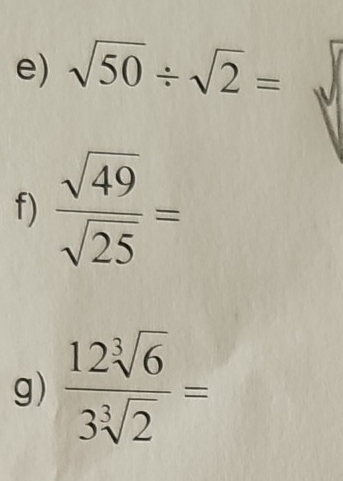 e) √50 ÷ √2 =
f) √49 / √25 =
g) 12∛6 / 3∛2 =